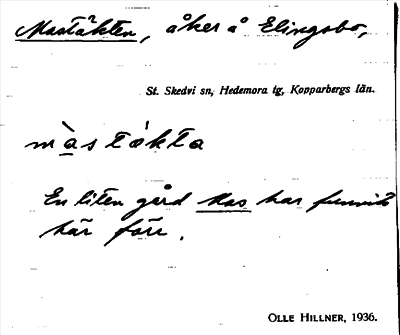 Mastäkten, åker å Elingsbo,
St. Skedvi sn, Hedemora tg, Kopparbergs län.
mὰstákta
En liten gård Mas har funnits
här förr.
OLLE HILLNER, 1936.